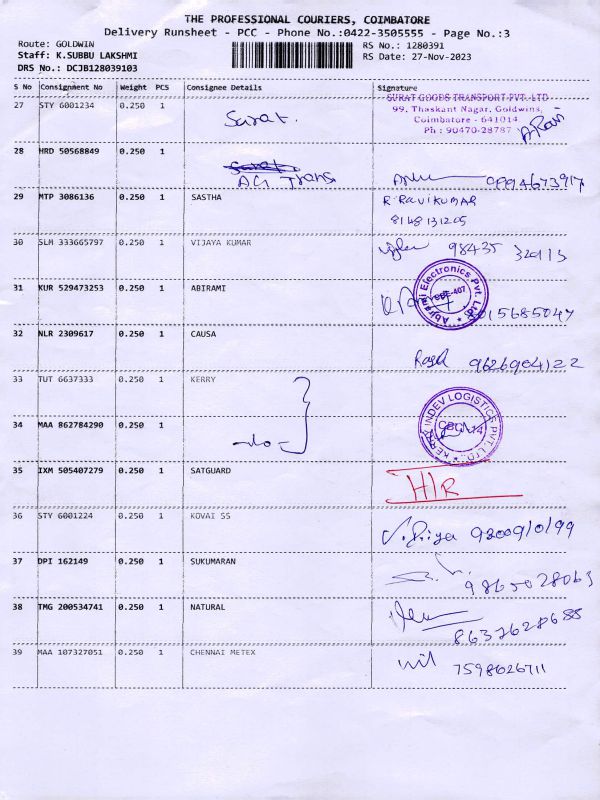 THE PROFESSIONAL COURIERS, COIMBATORE
Delivery Runsheet - PCC - Phone No.:0422-3505555 - Page No.:3
Route: GOLDWIN RS No.: 1280391
Staff: K.SUBBU LAKSHMI RS Date: 27-Nov-2023
DRS No.: DCJB128039103
S No Consignment No Weight PCS Consignee Details Signature
27 STY 6001234 0.250 1 Sarat.
SURAT GOODS TRANSPORT PVT. LTD
99, Thaskant Nagar, Goldwins,
Coimbatore - 641014
Ph : 90470-28787
28 HRD 50568849 0.250 1
ACI Trans.
29 MTP 3086136 0.250 1 SASTHA R. RAVIKUMAR
8148131205
30 SLM 333665797 0.250 1 VIJAYA KUMAR 98435 320113
31 KUR 529473253 0.250 1 ABIRAMI
Abirami Electronics Pvt. Ltd.
32 NLR 2309617 0.250 1 CAUSA
9626904122
33 TUT 6637333 0.250 1 KERRY
34 MAA 862784290 0.250 1 -do-
KERRY INDEV LOGISTICS PVT. LTD.
35 IXM 505407279 0.250 1 SATGUARD H/R
36 STY 6001224 0.250 1 KOVAI SS V. Priya 92009/0/99
37 DPI 162149 0.250 1 SUKUMARAN
9865028063
38 TMG 200534741 0.250 1 NATURAL
8637628688
39 MAA 107327051 0.250 1 CHENNAI METEX 7598626711